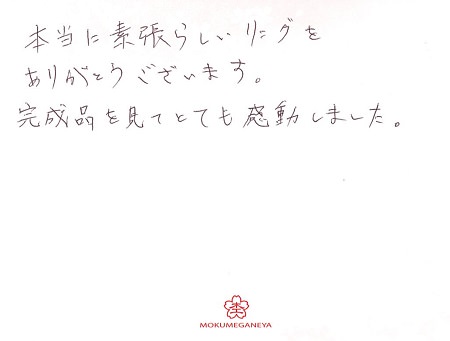 本当に素張らしいリングを
ありがとうございます。
完成品を見てとても感動しました。
MOKUMEGANEYA